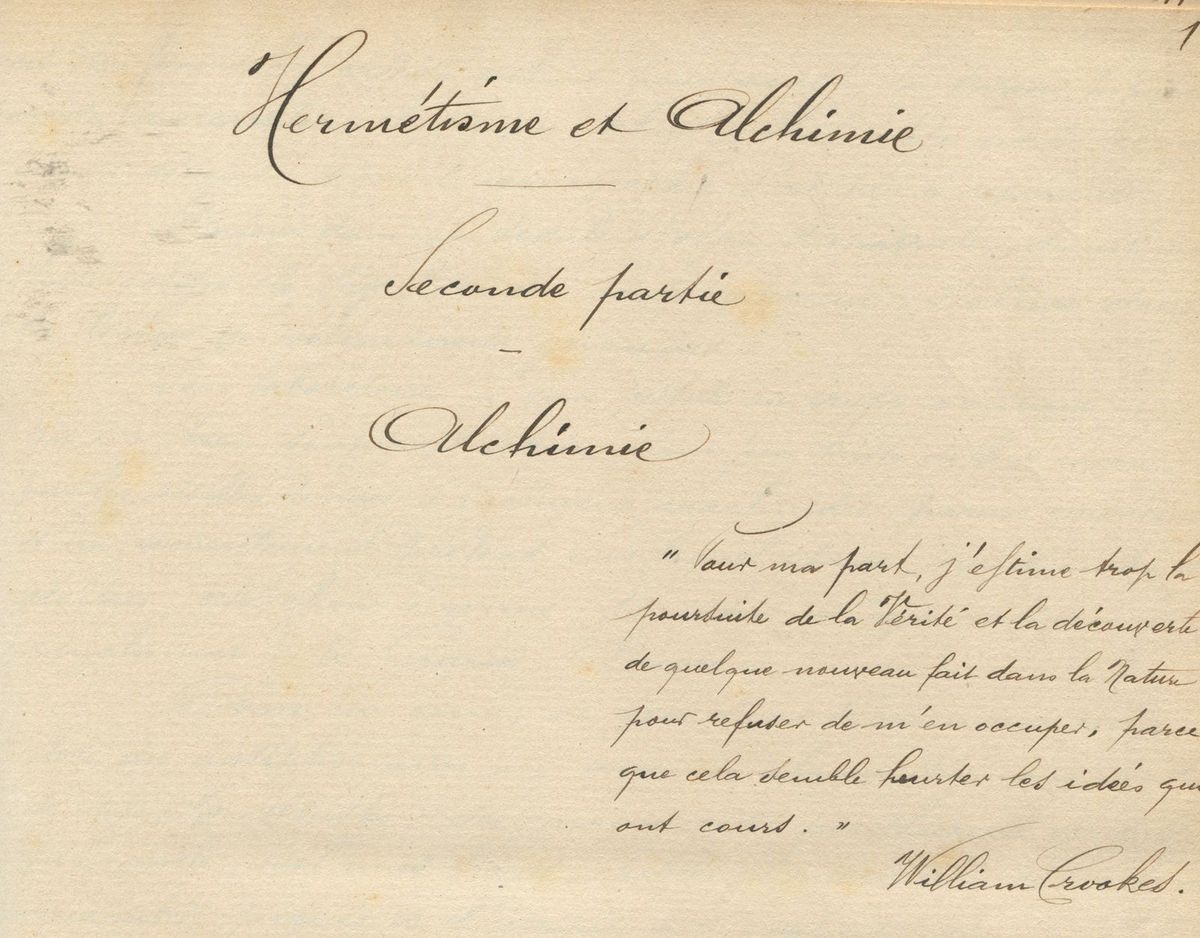 1
Hermétisme et Alchimie
Seconde partie
-
Alchimie
" Pour ma part, j'estime trop la
poursuite de la Vérité et la découverte
de quelque nouveau fait dans la Nature
pour refuser de m'en occuper, parce
que cela semble heurter les idées qui
ont cours. "
William Crookes.